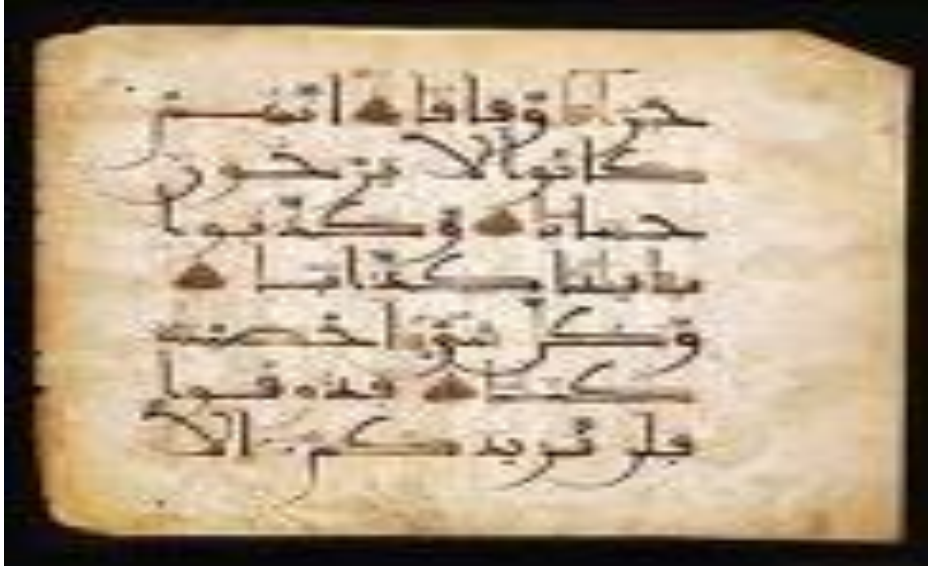 جزا وفاقا انهم
كانوا لا يرجون
حسابا وكذبوا
بايتنا كذابا
وكل شيء احصينه
كتبا فذوقوا
فلن نزيدكم الا